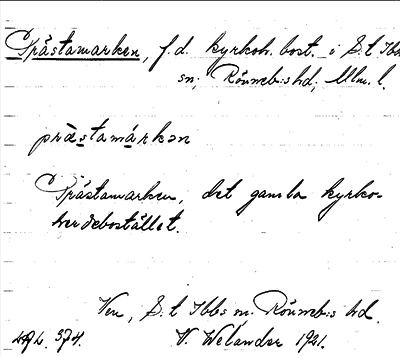 Prästamarken, f.d. kyrkoh. bost. i S:t Ibbs
sn, Rönneb:s hd, Mlm. l.
prästamárkən
Prästamarken, det gamla kyrko-
herdebostället.
Ven, S:t Ibbs sn. Rönneb:s hd.
V. Welander 1921.